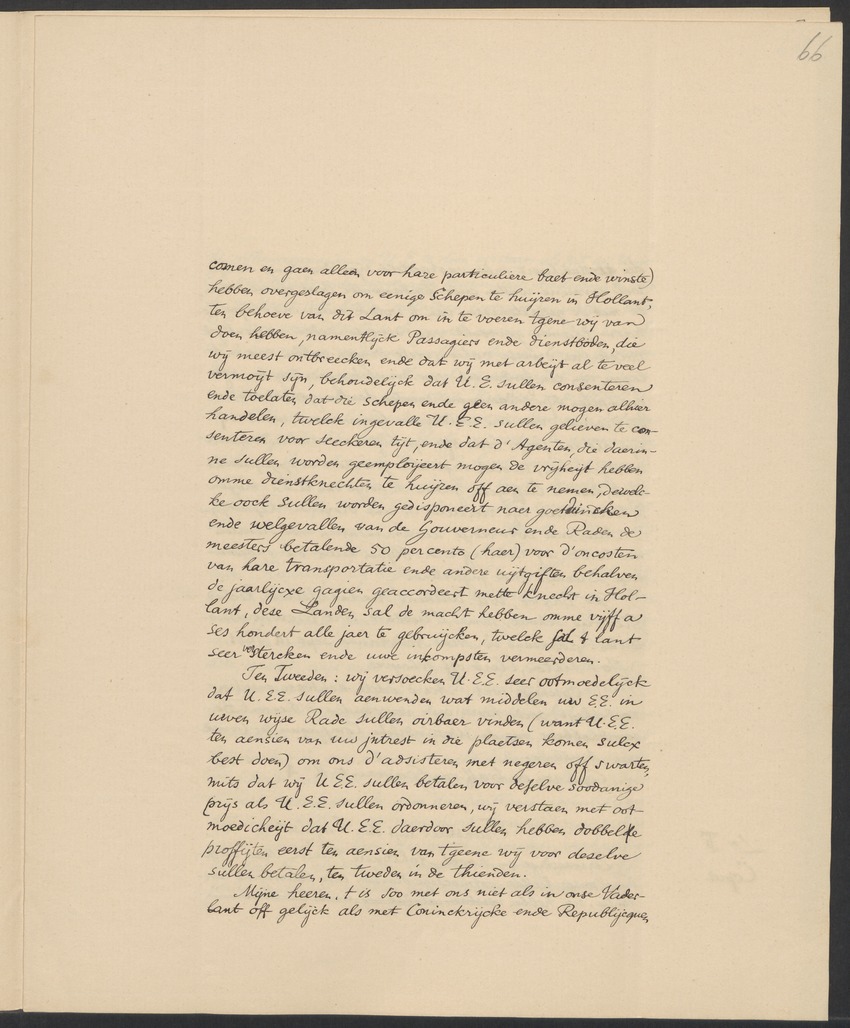 66
comen en gaen alleen voor hare particuliere baet ende winste)
hebben overgeslagen om eenige Schepen te huijren in Hollant,
ten behoeve van dit Lant om in te voeren tgene wij van
doen hebben, namentlijck Passagiers ende dienstboden, die
wij meest ontbreecken ende dat wij met arbeijt al te veel
vermoijt sijn, behoudelijck dat U.E. sullen consenteren
ende toelaten dat die schepen ende geen andere mogen alhier
handelen, twelck ingevalle U.E.E. sullen gelieven te con-
senteren voor seeckeren tijt, ende dat d'Agenten, die daerin-
ne sullen worden geemploijeert mogen de vrijheijt hebben
omme dienstknechten te huijren off aen te nemen, dewel-
ke oock sullen worden gedisponeert naer goetduncken
ende welgevallen van de Gouverneur ende Raden de
meesters betalende 50 per cento (haer) voor d'oncosten
van hare transportatie ende andere uijtgiften behalven
de jaarlijcxe gagien geaccordeert mette knecht in Hol-
lant, dese Landen sal de macht hebben omme vijff a
ses hondert alle jaer te gebruijcken, twelck sal t lant
seer verstercken ende uwe inkompsten vermeerderen.
Ten Tweeden: wij versoecken U.E.E. seer ootmoedelijck
dat U.E.E. sullen aenwenden wat middelen uw E.E. in
uwen wijse Rade sullen oirbaer vinden (want U.E.E.
ten aensien van uw jntrest in die plaetsen komen sulcx
best doen) om ons d'adsisteren met negeren off swarten,
mits dat wij U.E.E. sullen betalen voor deselve soodanige
prijs als U.E.E. sullen ordonneren, wij verstaen met oot-
moedicheijt dat U.E.E. daerdoor sullen hebben dobbelde
proffijten eerst ten aensien van tgeene wij voor deselve
sullen betalen, ten tweden in de thienden.
Mijne heeren, t is soo met ons niet als in onse Vader-
lant off gelijck als met Coninckrijcke ende Republijcquen